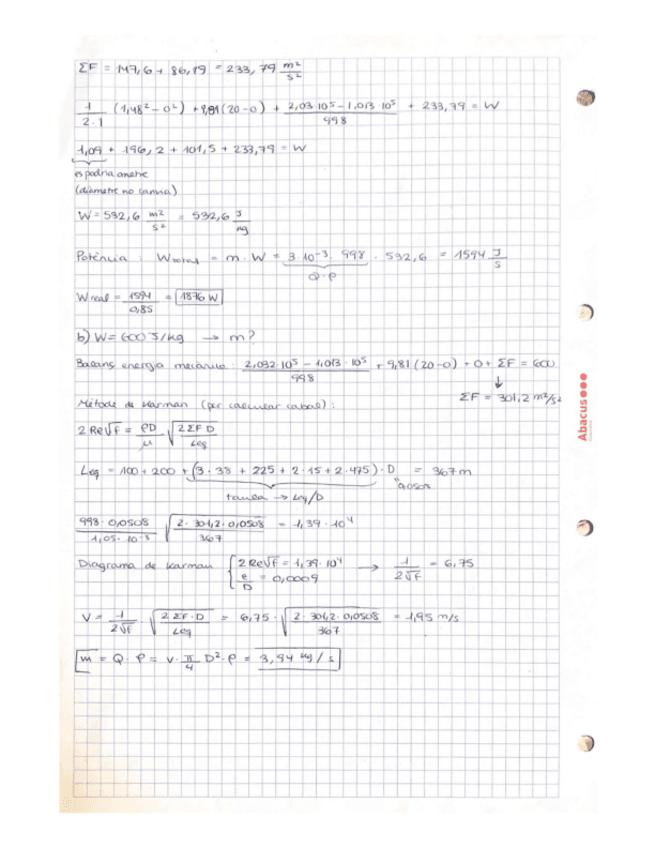 ΣF = 147,6 + 86,19 = 233,79 m²/s²
1/(2·1) (1,48² - 0²) + 9,81 (20-0) + (2,03·10⁵ - 1,013·10⁵)/998 + 233,79 = W
1,09 + 196,2 + 101,5 + 233,79 = W
es podria ometre
(diàmetre no canvia)
W = 532,6 m²/s² = 532,6 J/kg
Potència : W = m · W = 3·10⁻³ · 998 · 532,6 = 1594 J/s
Q·ρ
W real = 1594/0,85 = 1876 W
b) W = 600 J/kg → m?
Balanç energia mecànica : (2,032·10⁵ - 1,013·10⁵)/998 + 9,81 (20-0) + 0 + ΣF = 600
↓
ΣF = 301,2 m²/s²
Mètode de Karman (per calcular cabal) :
2 Re√f = ρD/μ √(2 ΣF D/Leq)
Leq = 100 + 200 + (3·33 + 225 + 2·15 + 2·475) · D = 367 m
0,0508
taula → Leq/D
998·0,0508/1,05·10⁻³ √(2·301,2·0,0508/367) = 1,39·10⁴
Diagrama de Karman { 2 Re√f = 1,39·10⁴ → 1/(2√f) = 6,75
e/D = 0,0009
V = 1/(2√f) √(2 ΣF·D/Leq) = 6,75 · √(2·301,2·0,0508/367) = 1,95 m/s
m = Q · ρ = v · π/4 D² · ρ = 3,94 kg/s
Abacus